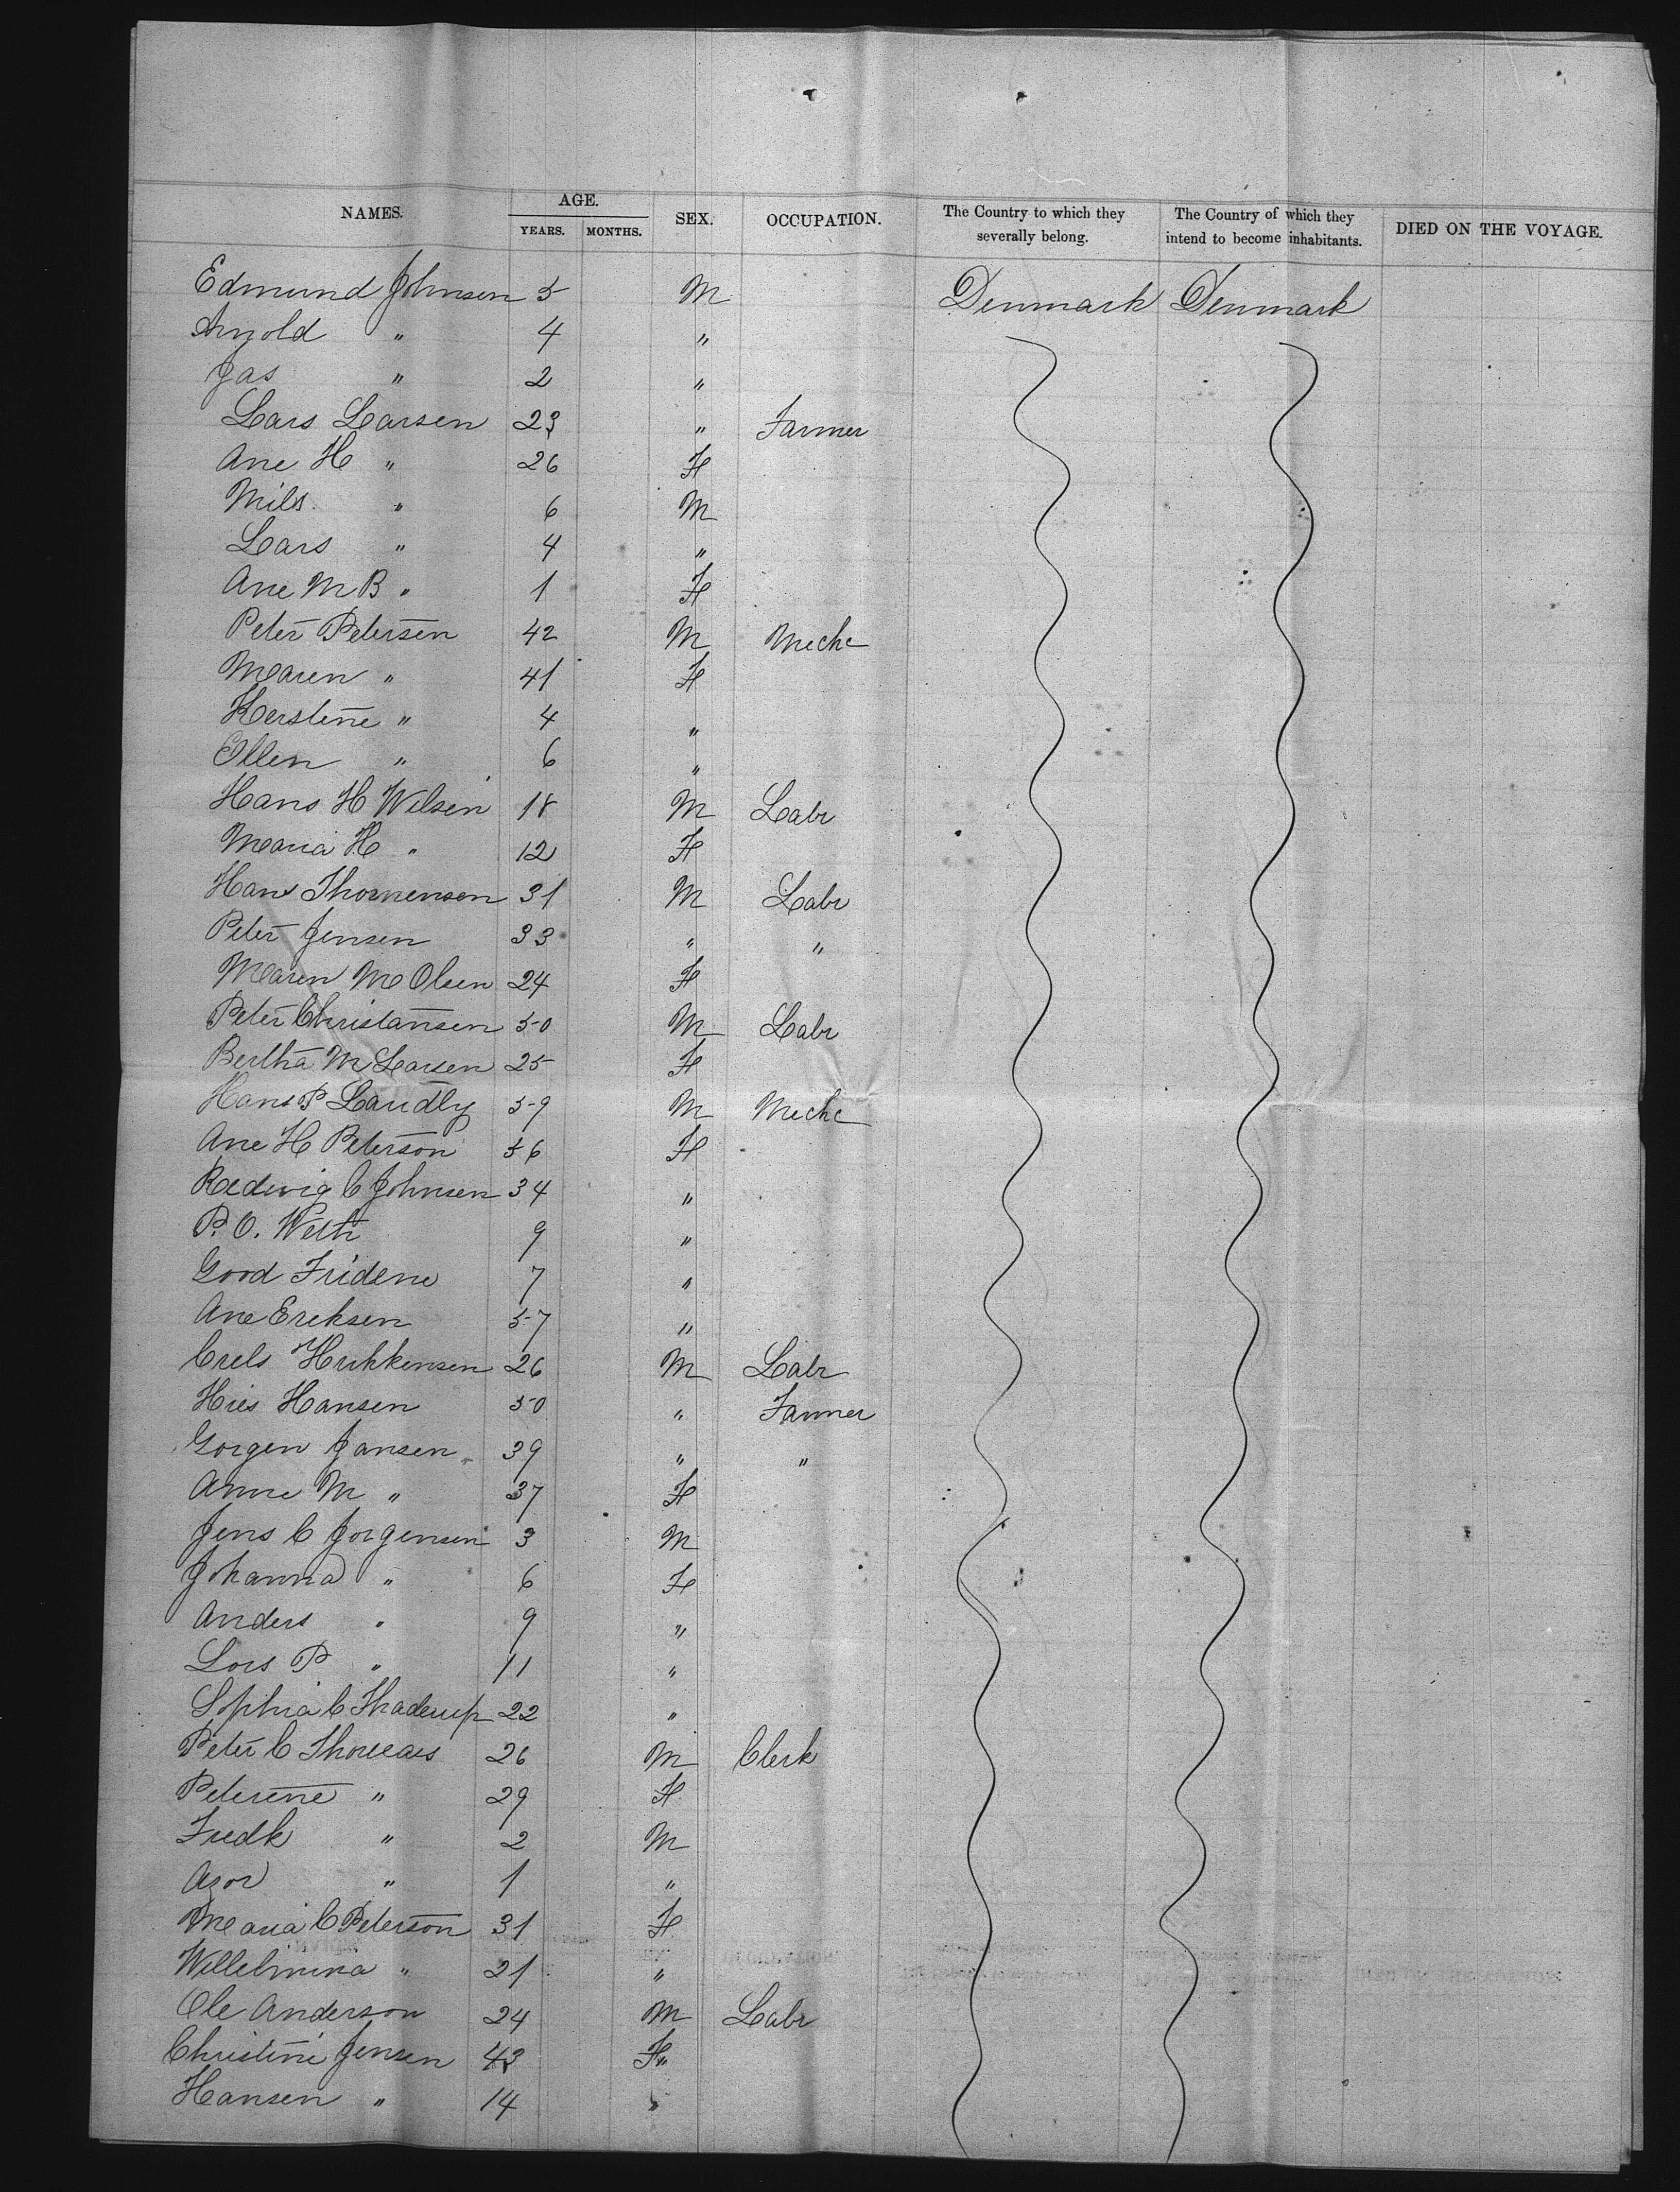 NAMES. AGE. SEX. OCCUPATION. The Country to which they severally belong. The Country of which they intend to become inhabitants. DIED ON THE VOYAGE.
YEARS. MONTHS.
Edmund Johnsen 5 M Denmark Denmark
Arnold " 4 "
Jas " 2 "
Lars Larsen 23 " Farmer
Ane H " 26 F
Nils " 6 M
Lars " 4 "
Ane M B " 1 F
Peter Petersen 42 M Mechc
Maren " 41 F
Kerstine " 4 "
Ellen " 6 "
Hans H Wilsen 18 M Labr
Maria H " 12 F
Hans Thomensen 31 M Labr
Peter Jensen 33 " "
Maren M Olsen 24 F
Peter Christansen 50 M Labr
Bertha M Larsen 25 F
Hans P Laudly 59 M Mechc
Ane H Peterson 56 F
Redwig C Johnsen 34 "
P. O. Weth 9 "
Good Fridene 7 "
Ane Ereksen 57 "
Crels Hukkensen 26 M Labr
Hies Hansen 50 " Farmer
Gorgen Jansen 39 " "
Anne M " 37 F
Jens C Jorgensen 3 M
Johanna " 6 F
Anders " 9 "
Lors P " 11 "
Sophia C Thaderup 22 "
Peter C Thomas 26 M Clerk
Peterine " 29 F
Fredk " 2 M
Azor " 1 "
Maria C Peterson 31 F
Willelmina " 21 "
Ole Anderson 24 M Labr
Christine Jensen 43 F"
Hansen " 14 "